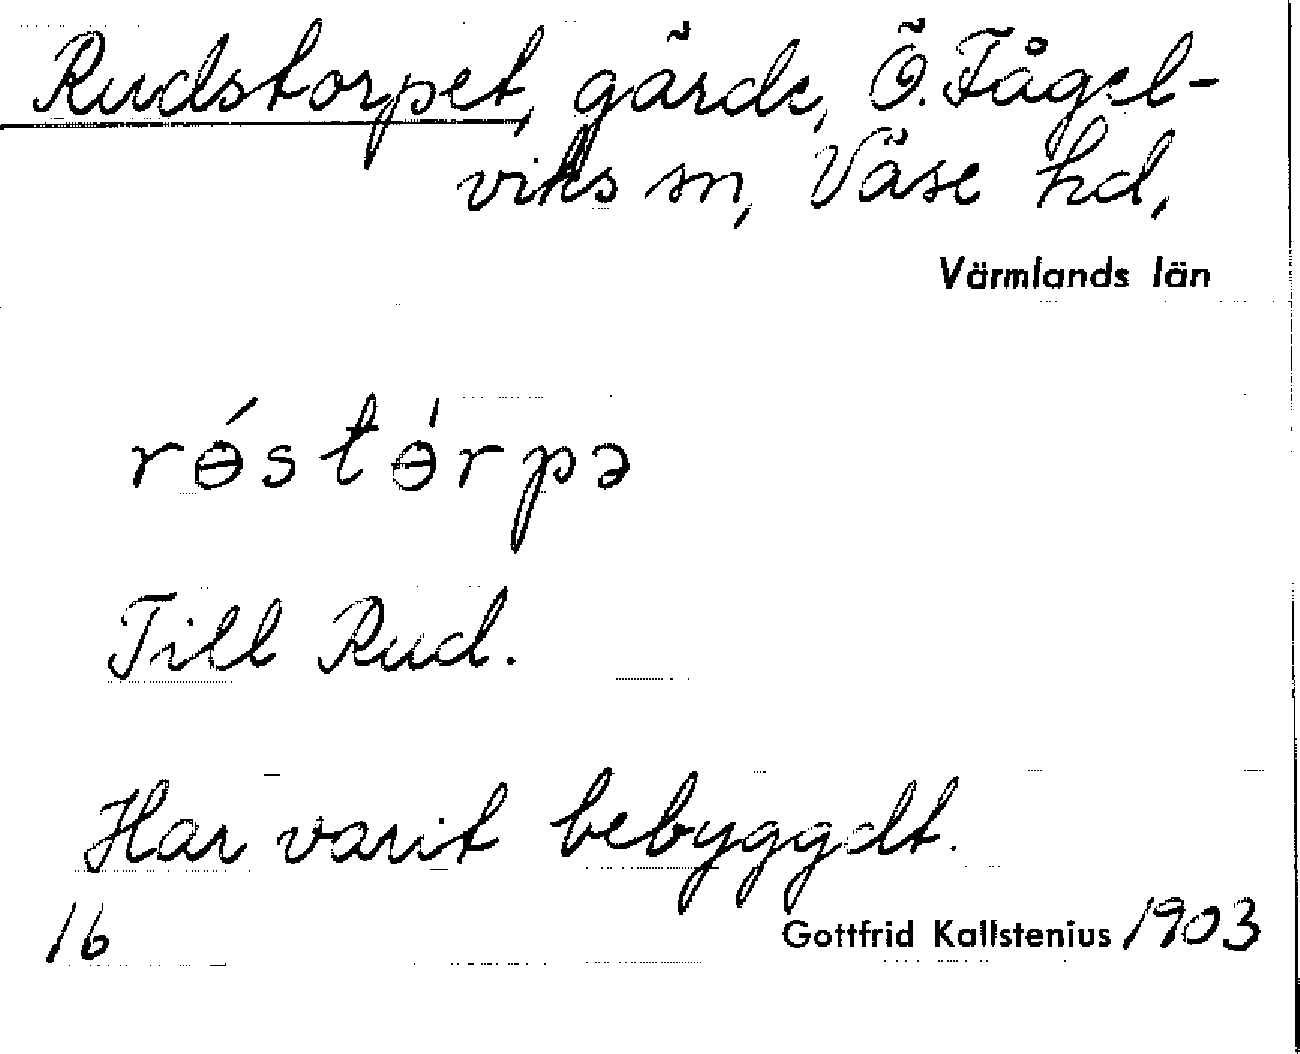 Rudstorpet, gärde, Ö. Fågel-
viks sn, Väse hd,
Värmlands län
rɵ́stɵ́rpə
Till Rud.
Har varit bebyggdt.
16 Gottfrid Kallstenius 1903